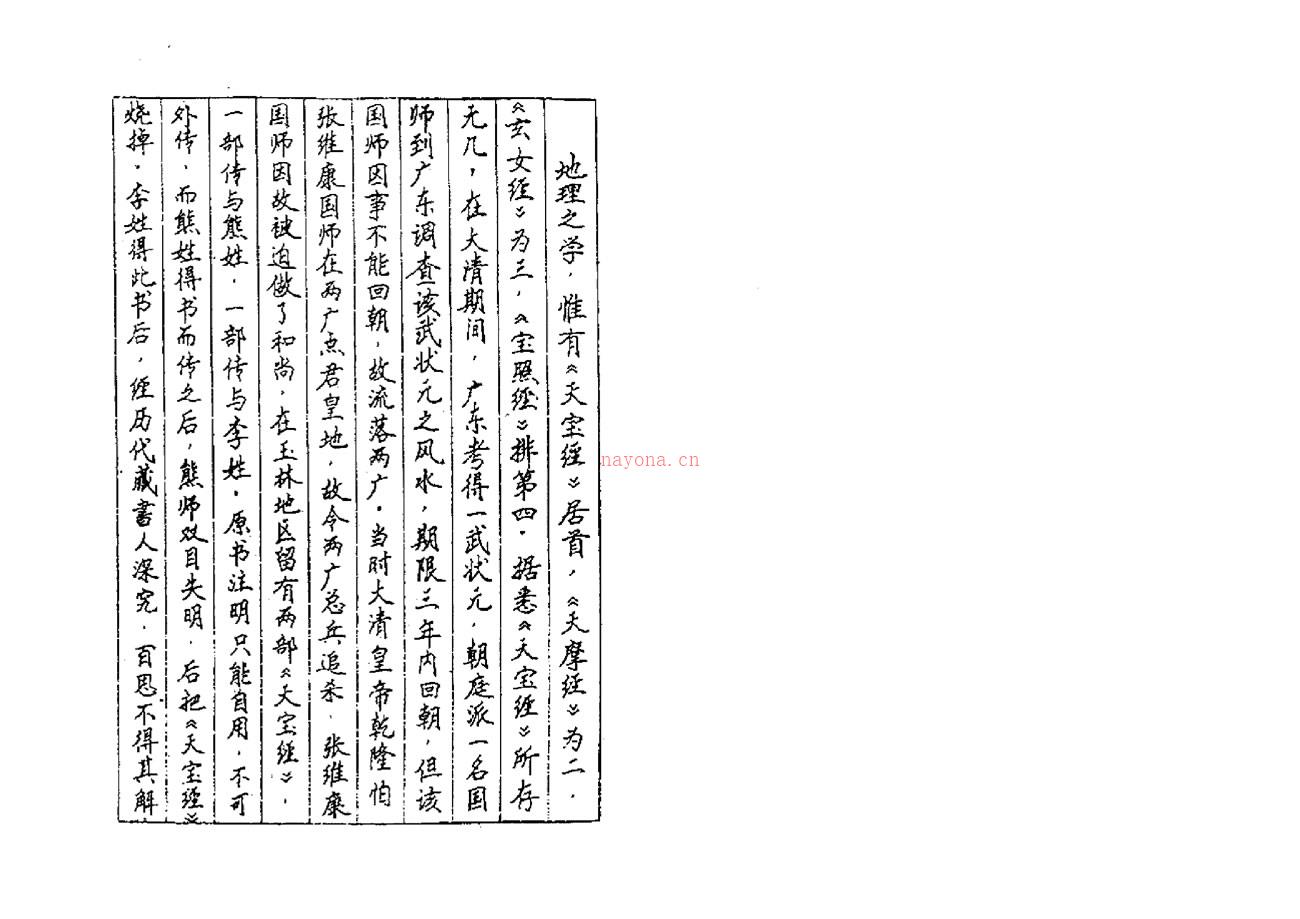 地理之学，惟有《天宝经》居首，《天摩经》为二．
《玄女经》为三．《宝照经》排第四．据悉《天宝经》所存
无几，在大清期间，广东考得一武状元．朝庭派一名国
师到广东调查该武状元之风水，期限三年内回朝，但该
国师因事不能回朝．故流落两广．当时大清皇帝乾隆怕
张维康国师在两广点君皇地．故令两广总兵追杀．张维康
国师因故被迫做了和尚．在玉林地区留有两部《天宝经》．
一部传与熊姓．一部传与李姓．原书注明只能自用．不可
外传．而熊姓得书而传之后，熊师双目失明．后把《天宝经》
烧掉．李姓得此书后，经历代藏书人深究．百思不得其解
nayona.cn